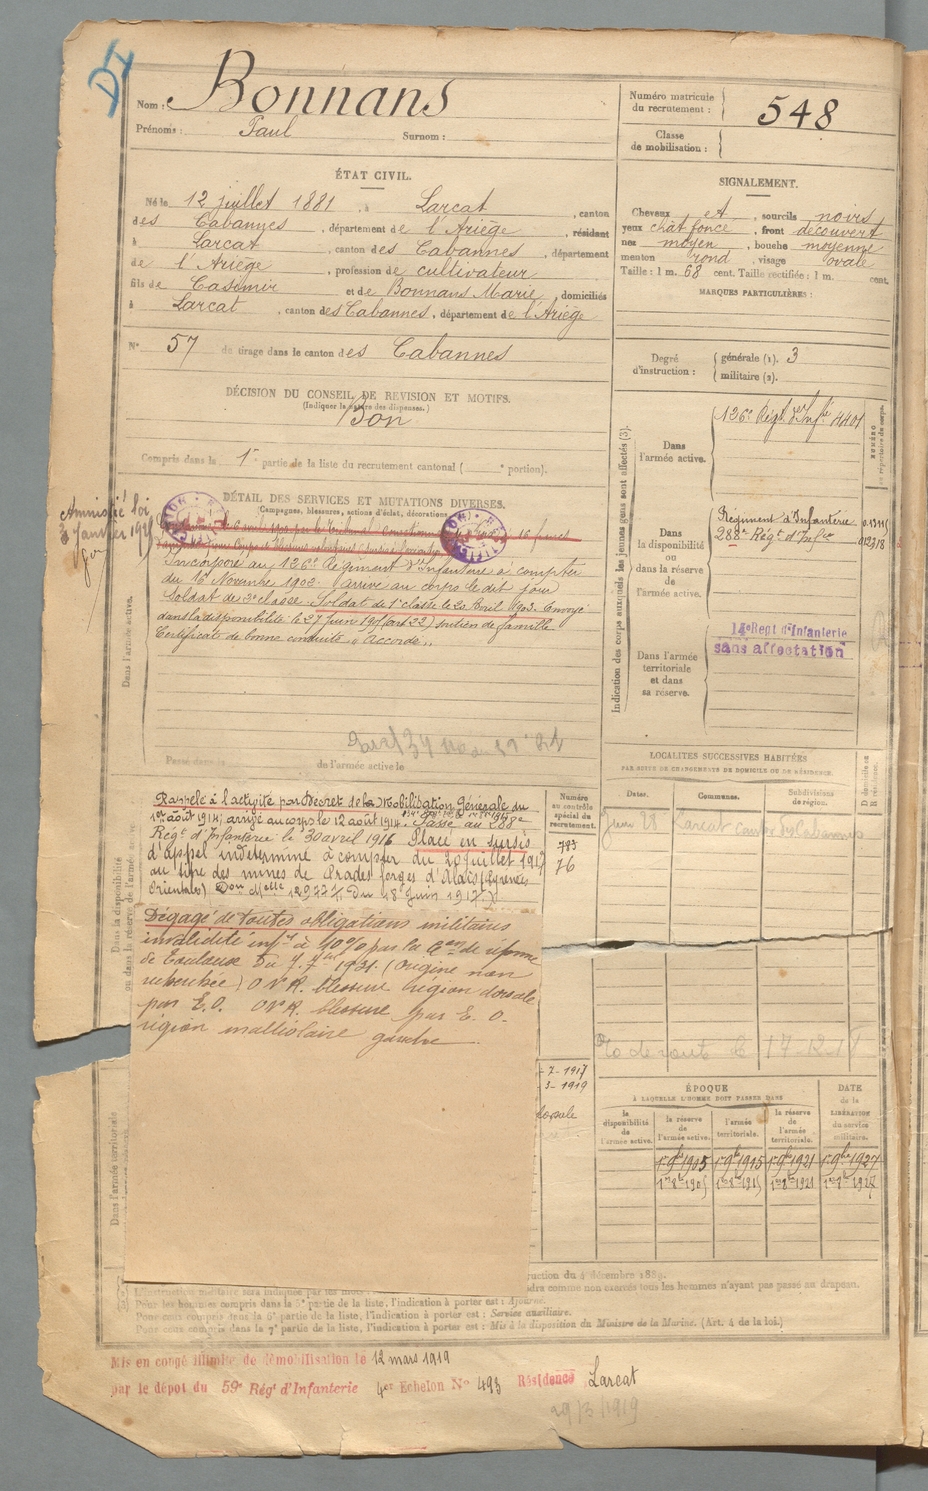 DI
Nom : Bonnans
Prénoms : Paul Surnom :
Numéro matricule du recrutement : 548
Classe de mobilisation :
ÉTAT CIVIL.
Né le 12 juillet 1881, à Larcat, canton
des Cabannes, département de l'Ariège, résidant
à Larcat, canton des Cabannes, département
de l'Ariège, profession de cultivateur
fils de Casimir et de Bonnans Marie, domiciliés
à Larcat, canton des Cabannes, département de l'Ariège
N° 57 de tirage dans le canton des Cabannes
SIGNALEMENT.
Cheveux et, sourcils noirs
yeux chat foncé, front découvert
nez moyen, bouche moyenne
menton rond, visage ovale
Taille : 1 m. 68 cent. Taille rectifiée : 1 m. cent.
MARQUES PARTICULIÈRES :
Degré d'instruction : générale (1). 3
militaire (2).
DÉCISION DU CONSEIL DE REVISION ET MOTIFS.
(Indiquer la nature des dispenses.)
Bon
Compris dans la 1re partie de la liste du recrutement cantonal ( e portion).
DÉTAIL DES SERVICES ET MUTATIONS DIVERSES.
Campagnes, blessures, actions d'éclat, décorations
Amnistié loi
3 Janvier 1925
16 francs
Incorporé au 126e Régiment d'Infanterie à compter
du 16 Novembre 1902. Arrivé au corps le dit jour
Soldat de 2e classe. Soldat de 1e classe le 20 Avril 1903. Envoyé
dans la disponibilité le 27 Juin (art 22) soutien de famille
Certificate de bonne conduite "accordé"
Dans l'armée active.
Passé dans
de l'armée active le
Indication des corps auxquels les jeunes gens sont affectés (3).
Dans l'armée active.
126e Régt d'Infie 4401
NUMÉRO au répertoire du corps.
Dans la disponibilité ou dans la réserve de l'armée active.
Régiment d'Infanterie
288e Régt d'Infie 012318
Dans l'armée territoriale et dans sa réserve.
14e Regt d'Infanterie
sans affectation
LOCALITÉS SUCCESSIVES HABITÉES
PAR SUITE DE CHANGEMENTS DE DOMICILE OU DE RÉSIDENCE.
Dates. Communes. Subdivisions de région. D domicile ou R résidence.
Larcat canton des Cabannes
Rappelé à l'activité par Décret de la Mobilisation Générale du
1er août 1914; arrivé au corps le 12 août 1914. Passé au 288e
Régt d'Infanterie le 30 avril 1916 Placé en sursis
d'appel indéterminé à compter du 20 juillet 1917
au titre des mines de Prades forges d'Alais (Pyrénées
Orientales) Don Melle 12977/ Du 18 Juin 1917.
Numéro au contrôle spécial du recrutement.
793
76
Dans la disponibilité ou dans la réserve de l'armée active
Dégagé de toutes obligations militaires
invalidité infre à 10% par la Con de réforme
de Toulouse du 7. 7 1931. (Origine non
recherchée) 1° R. blessure région dorsale
par E.O. 2° R. blessure par E. O.
région malléolaire gauche
7-1917
3-1919
Dans l'armée territoriale
17-12-
ÉPOQUE
À LAQUELLE L'HOMME DOIT PASSER DANS
la disponibilité de l'armée active. la réserve de l'armée active. l'armée territoriale. la réserve de l'armée territoriale.
DATE de la LIBÉRATION du service militaire.
1er 9bre 1905 1er 9bre 1915 1er 9bre 1921 1er 9bre 1927
1er 8bre 1905 1er 8bre 1915 1er 8bre 1921 1er 8bre 1927
ruction du 4 décembre 1889.
dra comme non exercés tous les hommes n'ayant pas passé au drapeau.
Pour les hommes compris dans la 5e partie de la liste, l'indication à porter est : Ajourné.
Pour ceux compris dans la 6e partie de la liste, l'indication à porter est : Service auxiliaire.
Pour ceux compris dans la 7e partie de la liste, l'indication à porter est : Mis à la disposition du Ministre de la Marine. (Art. 4 de la loi.)
Mis en congé illimité de démobilisation le 12 mars 1919
par le dépôt du 59e Régt d'Infanterie 4er Echelon N° 493 Résidence Larcat
29/3/1919